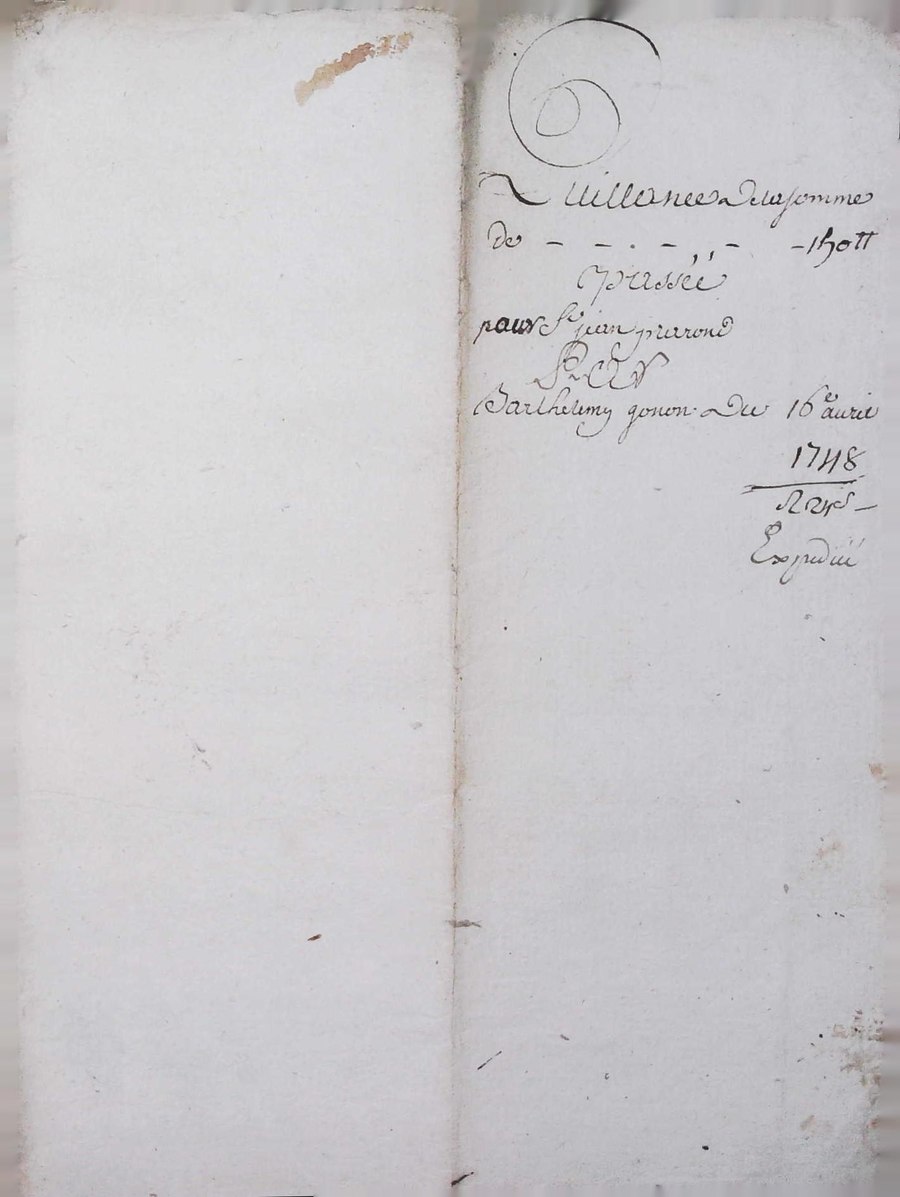 Quittance De la somme
de - - . - - - 150 tt
passéé
pour Sr jean prarond
Par
Barthelemy gonon Du 16e auril
1748
Expedié